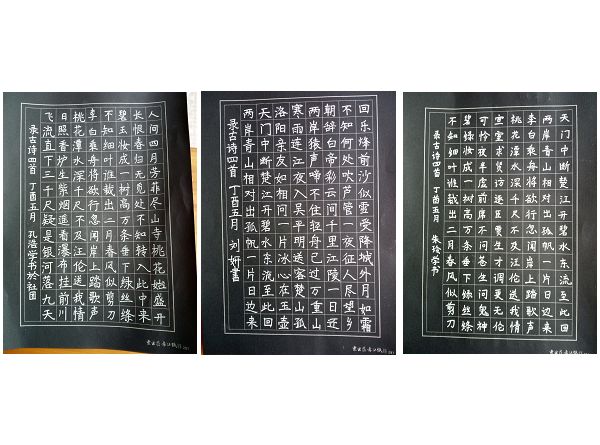 人间四月芳菲尽山寺桃花始盛开
长恨春归无觅处不知转入此中来
碧玉妆成一树高万条垂下绿丝绦
不知细叶谁裁出二月春风似剪刀
李白乘舟将欲行忽闻岸上踏歌声
桃花潭水深千尺不及汪伦送我情
日照香炉生紫烟遥看瀑布挂前川
飞流直下三千尺疑是银河落九天
录古诗四首 丁酉五月 孔浩学书於社团
回乐烽前沙似雪受降城外月如霜
不知何处吹芦管一夜征人尽望乡
朝辞白帝彩云间千里江陵一日还
两岸猿声啼不住轻舟已过万重山
寒雨连江夜入吴平明送客楚山孤
洛阳亲友如相问一片冰心在玉壶
天门中断楚江开碧水东流至此回
两岸青山相对出孤帆一片日边来
录古诗四首 丁酉五月 刘妍書
天门中断楚江开碧水东流至此回
两岸青山相对出孤帆一片日边来
李白乘舟将欲行忽闻岸上踏歌声
桃花潭水深千尺不及汪伦送我情
宣室求贤访逐臣贾生才调更无伦
可怜夜半虚前席不问苍生问鬼神
碧绿妆成一树高万条垂下绿丝绦
不知细叶谁裁出二月春风似剪刀
录古诗四首 丁酉五月 学书